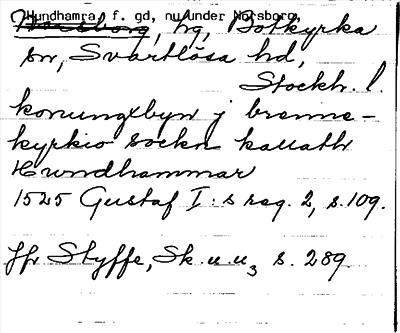 Hundhamra, f. gd, nu under Norsborg,
Norsborg, hg, Botkyrka
sn, Svartlösa hd,
Stockh. l.
konungxbyn j brenne-
kyrkio sockn kallath
Hwndhammar
1525 Gustaf I:s reg. 2, s. 109.
Jfr Styffe, Sk u. u3 s. 289.